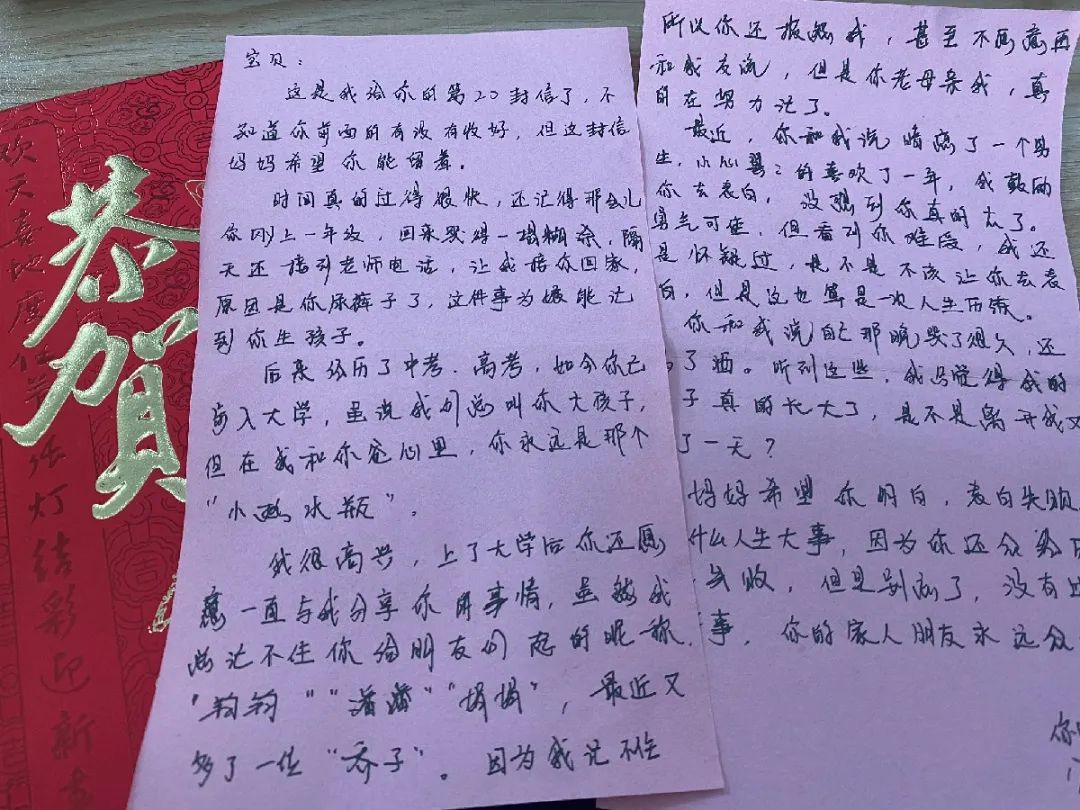 恭贺
欢天喜地度佳节
张灯结彩迎新春
宝贝：
这是我给你的第20封信了，不
知道你前面的有没有收好，但这封信
妈妈希望你能留着。
时间真的过得很快，还记得那会儿
你刚上一年级，回来哭得一塌糊涂，隔
天还接到老师电话，让我陪你回家，
原因是你尿裤子了，这件事为娘能记
到你生孩子。
后来经历了中考、高考，如今你已
步入大学，虽说我们总叫你大孩子，
但在我和你爸心里，你永远是那个
“小鸡水瓶”。
我很高兴，上了大学后你还愿
意一直与我分享你的事情，虽然我
总记不住你给朋友们起的昵称，
“钧钧”“潘潘”“娟娟”，最近又
多了一位“乔子”。因为我记不住
所以你还报怨我，甚至不愿意再
和我交流，但是你老母亲我，真
的在努力记了。
最近，你和我说暗恋了一个男
生，小心翼々的喜欢了一年，我鼓励
你去表白，没想到你真的去了。
勇气可佳，但看到你难受，我还
是怀疑过，是不是不该让你去表
白，但是这也算是一次人生历练。
你和我说自己那晚哭了很久，还
了酒。听到这些，我只觉得我的
子真的长大了，是不是离开我又
了一天？
妈妈希望你明白，表白失败
什么人生大事，因为你还会经历
失败，但是别怕了，没有过
事，你的家人朋友永远会
你